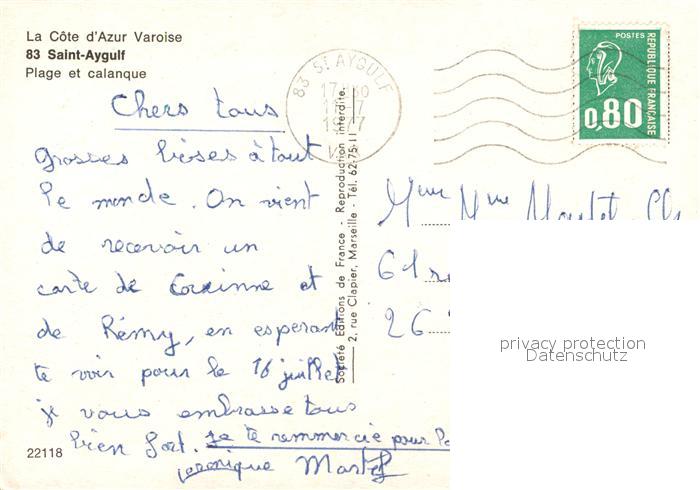 La Côte d'Azur Varoise
83 Saint-Aygulf
Plage et calanque
83 St AYGULF
17H30
11-7
1977
POSTES
REPUBLIQUE FRANÇAISE
0,80
Chers tous
grosses bises à tout
le monde. On vient
de recevoir un
carte de Corinne et
de Rémy, en esperant
te voir pour le 16 juillet
je vous embrasse tous
bien fort. je te remmercie pour
Veronique Martel
22118
Société Editions de France - Reproduction interdite.
2, rue Clapier, Marseille - Tél. 62-75-11
Mme
61
26
privacy protection
Datenschutz